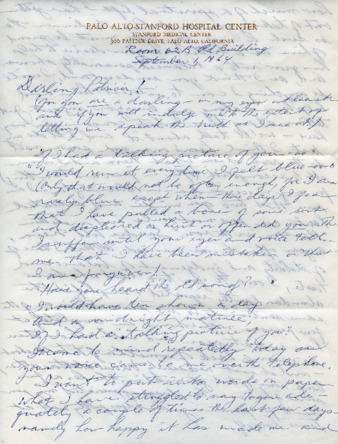 PALO ALTO-STANFORD HOSPITAL CENTER
STANFORD MEDICAL CENTER
300 PASTEUR DRIVE, PALO ALTO, CALIFORNIA
Room 62B Old Building
September 6, 1964
Darling
you are a darling - in my eyes
and if you will indulge me the
letting me speak the
"If I had a talking picture of you"
I would run it every time I felt blue
Only that would not be often enough for I am
rarely blue except when these days I fear
that I have pulled a boner of some sort
and displeased or hurt or offended you. Then
I suffer until your eyes and voice tell
me that I have been mistaken or that
I am forgiven!
Have you heard the old song?
I would have ten shows a day
And a midnight matinee,
If I had a "talking picture of you"
It came to mind repeatedly today as
your voice came to me over the telephone.
I want to put into words on paper
what I have struggled to say to you ade-
quately a couple of times the last few days -
namely how happy it has made me